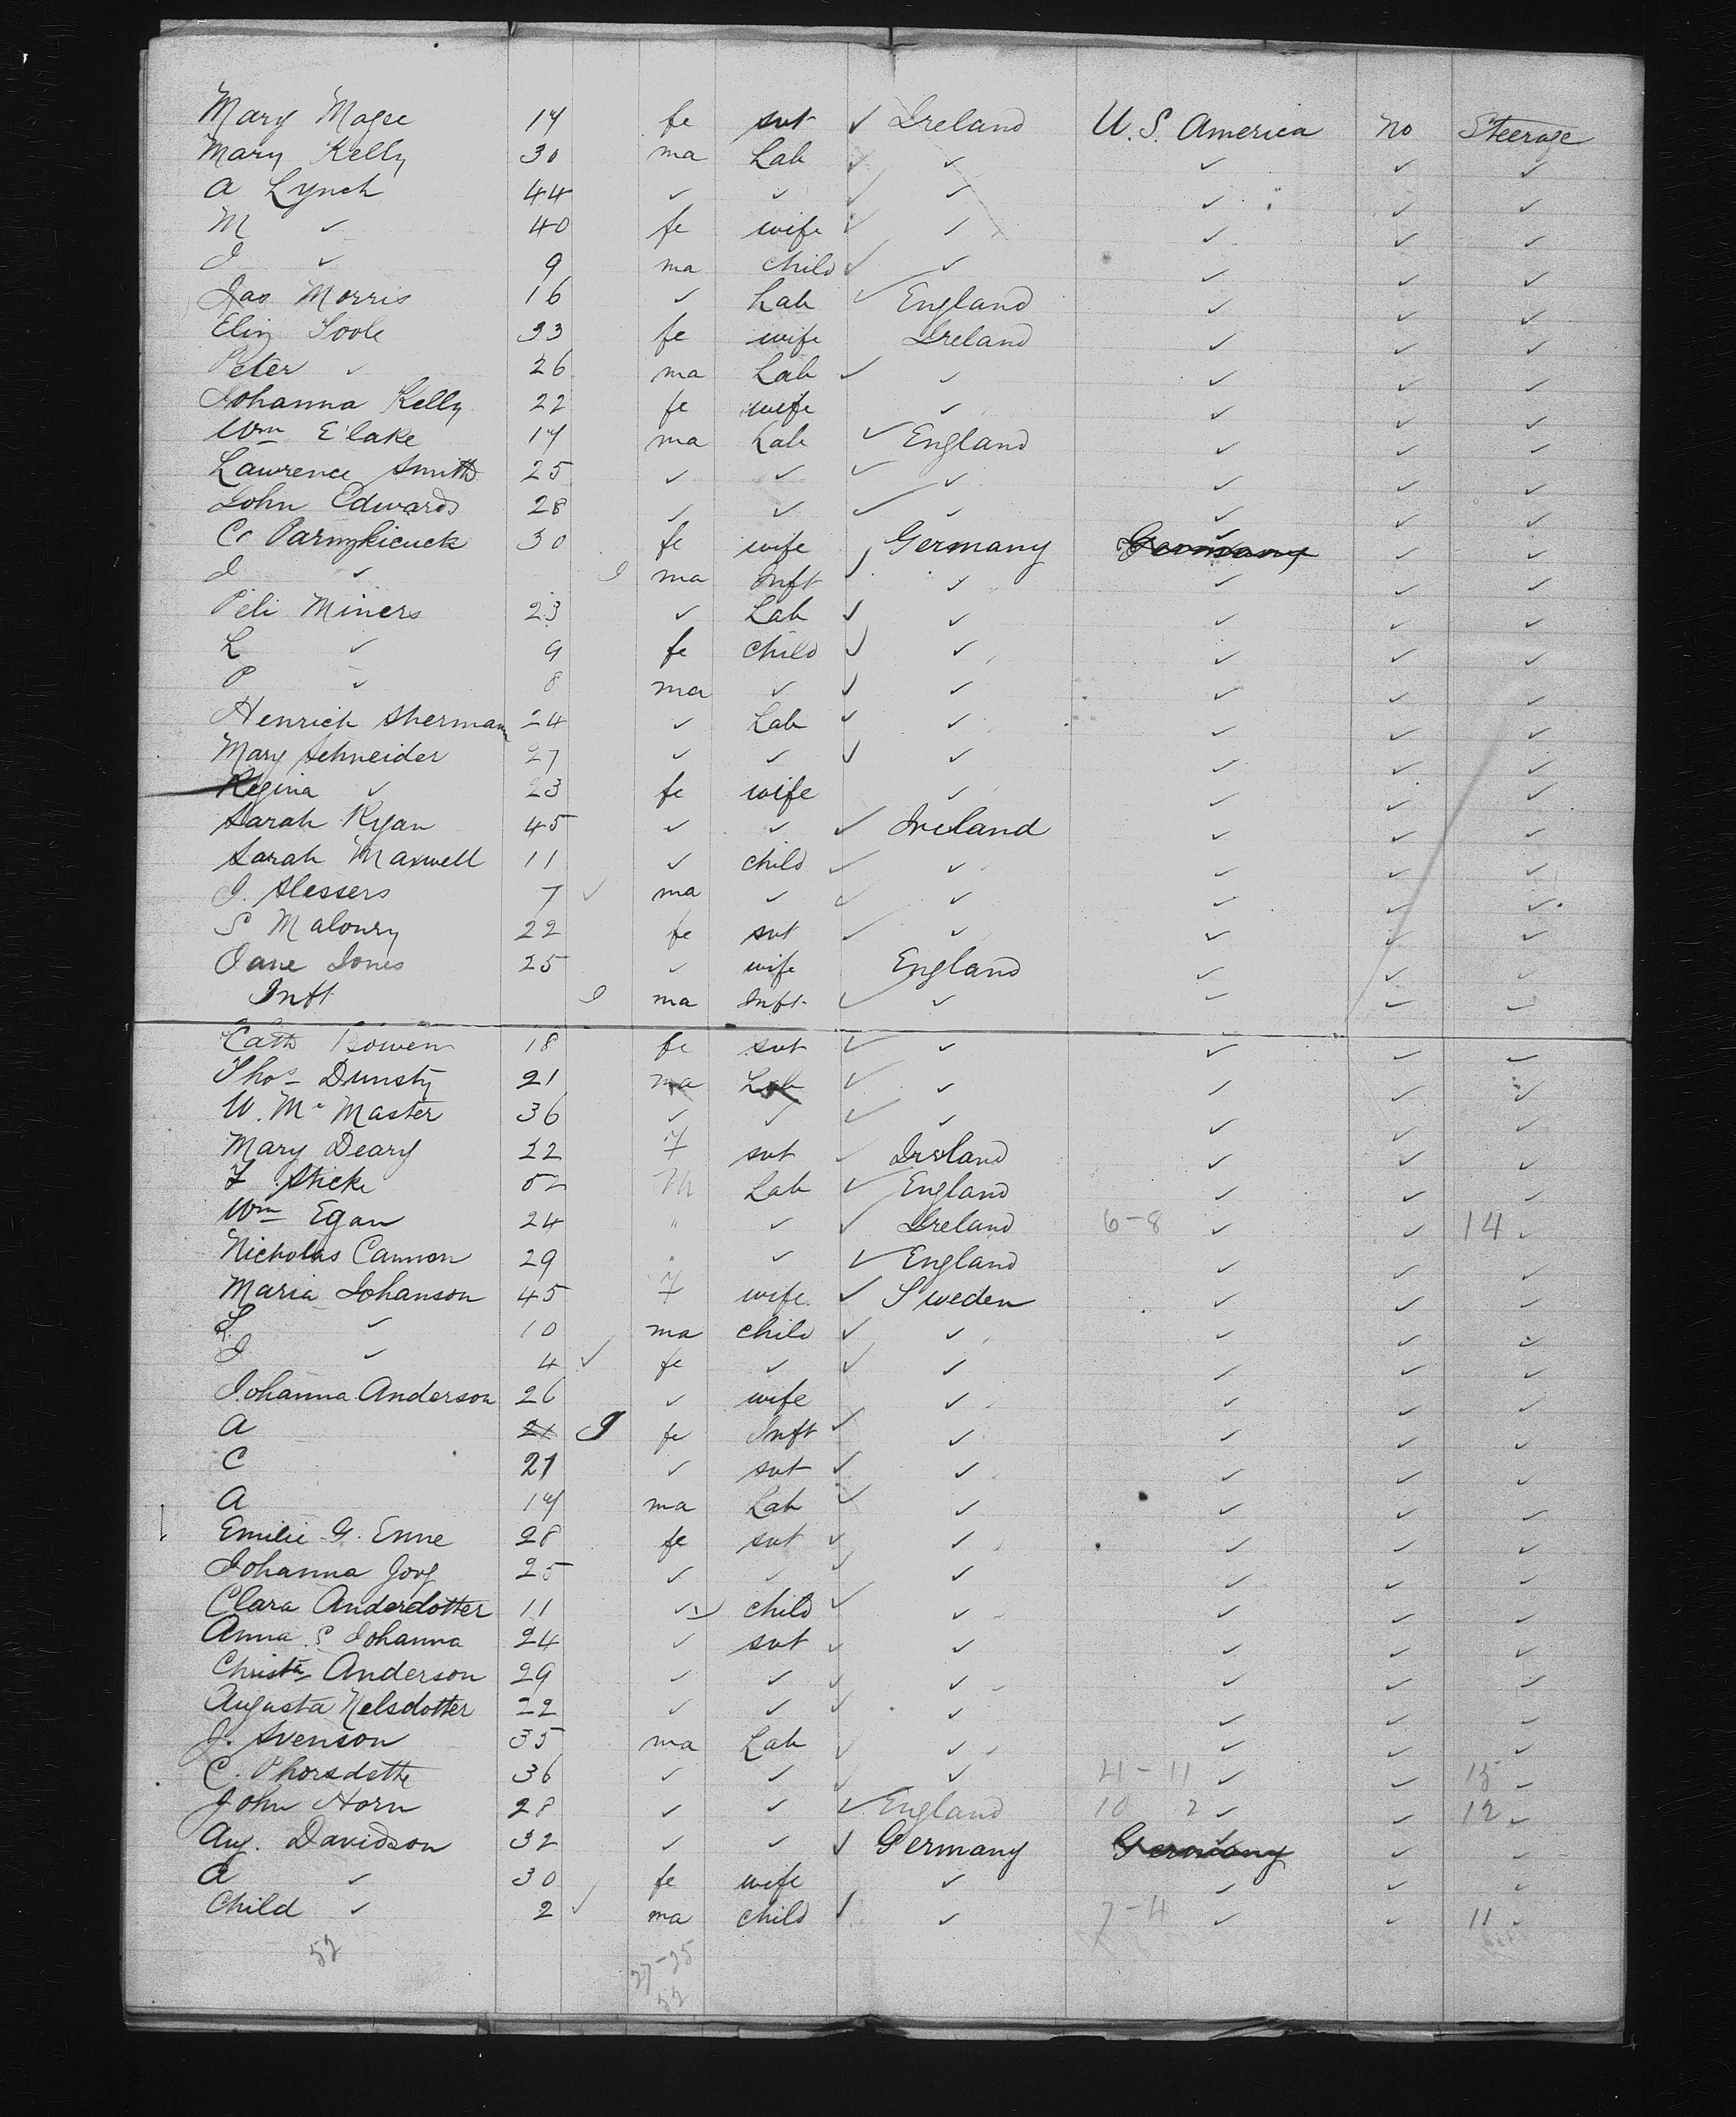 Mary Magee 17 fe svt ✓ Ireland U.S. America no Steerage
Mary Kelly 30 ma Lab ✓ ✓ ✓ ✓ ✓
A Lynch 44 ✓ ✓ ✓ ✓ ✓ ✓ ✓
M ✓ 40 fe wife ✓ ✓ ✓ ✓ ✓
J ✓ 9 ma child ✓ ✓ ✓ ✓ ✓
Jas Morris 16 ✓ Lab ✓ England ✓ ✓ ✓
Eliz Toole 33 fe wife Ireland ✓ ✓ ✓
Peter ✓ 26 ma Lab ✓ ✓ ✓ ✓ ✓
Johanna Kelly 22 fe wife ✓ ✓ ✓ ✓
Wm E lake 17 ma Lab ✓ England ✓ ✓ ✓
Lawrence Smith 25 ✓ ✓ ✓ ✓ ✓ ✓ ✓
John Edwards 28 ✓ ✓ ✓ ✓ ✓ ✓ ✓
30 fe wife Germany Germany ✓ ✓ ✓
J ✓ I ma Inft ✓ ✓ ✓ ✓ ✓
Peli Miners 23 ✓ Lab ✓ ✓ ✓ ✓ ✓
L ✓ 9 fe child ✓ ✓ ✓ ✓ ✓
P ✓ 8 ma ✓ ✓ ✓ ✓ ✓ ✓
Henrich Sherman 24 ✓ Lab ✓ ✓ ✓ ✓ ✓
Mary Schneider 27 ✓ ✓ ✓ ✓ ✓ ✓ ✓
Regina ✓ 23 fe wife ✓ ✓ ✓ ✓
Sarah Ryan 45 ✓ ✓ ✓ Ireland ✓ ✓ ✓
Sarah Maxwell 11 ✓ child ✓ ✓ ✓ ✓ ✓
J. Slessers 7 ✓ ma ✓ ✓ ✓ ✓ ✓ ✓
S Malonry 22 fe svt ✓ ✓ ✓ ✓ ✓
Jane Jones 25 ✓ wife England ✓ ✓ ✓
Inft I ma Inft ✓ ✓ ✓ ✓ ✓
Cath Bowen 18 fe svt ✓ ✓ ✓ ✓ ✓
Thos Dunsty 21 ma Lab ✓ ✓ ✓ ✓ ✓
W. Mc Master 36 ✓ ✓ ✓ ✓ ✓ ✓ ✓
Mary Deary 22 F svt ✓ Ireland ✓ ✓ ✓
Sticke 52 M Lab ✓ England ✓ ✓ ✓
Wm Egan 24 " ✓ ✓ Ireland 6-8 ✓ ✓ 14 ✓
Nicholas Cannon 29 " ✓ ✓ England ✓ ✓ ✓
Maria Johanson 45 F wife ✓ Sweden ✓ ✓ ✓
L ✓ 10 ma child ✓ ✓ ✓ ✓ ✓
J ✓ 4 ✓ fe ✓ ✓ ✓ ✓ ✓ ✓
Johanna Anderson 26 ✓ wife ✓ ✓ ✓ ✓
A 21 I fe Inft ✓ ✓ ✓ ✓ ✓
C 21 ✓ svt ✓ ✓ ✓ ✓ ✓
A 17 ma Lab ✓ ✓ ✓ ✓ ✓
Emilie G. Enne 28 fe svt ✓ ✓ ✓ ✓ ✓
Johanna 25 ✓ ✓ ✓ ✓ ✓ ✓ ✓
Clara Anderdotter 11 ✓ child ✓ ✓ ✓ ✓ ✓
Anna S Johanna 24 ✓ svt ✓ ✓ ✓ ✓ ✓
Christa Anderson 29 ✓ ✓ ✓ ✓ ✓ ✓ ✓
Augusta Nelsdotter 22 ✓ ✓ ✓ ✓ ✓ ✓ ✓
J. Svenson 35 ma Lab ✓ ✓ ✓ ✓ ✓
C. 36 ✓ ✓ ✓ ✓ 4-11 ✓ ✓ 15 ✓
John Horn 28 ✓ ✓ ✓ England 10 2 ✓ ✓ 12 ✓
Aug. Davidson 32 ✓ ✓ ✓ Germany Germany ✓ ✓ ✓
A ✓ 30 fe wife ✓ ✓ ✓ ✓
Child ✓ 2 ✓ ma child ✓ ✓ 7-4 ✓ ✓ 11 ✓
52 27-25
52